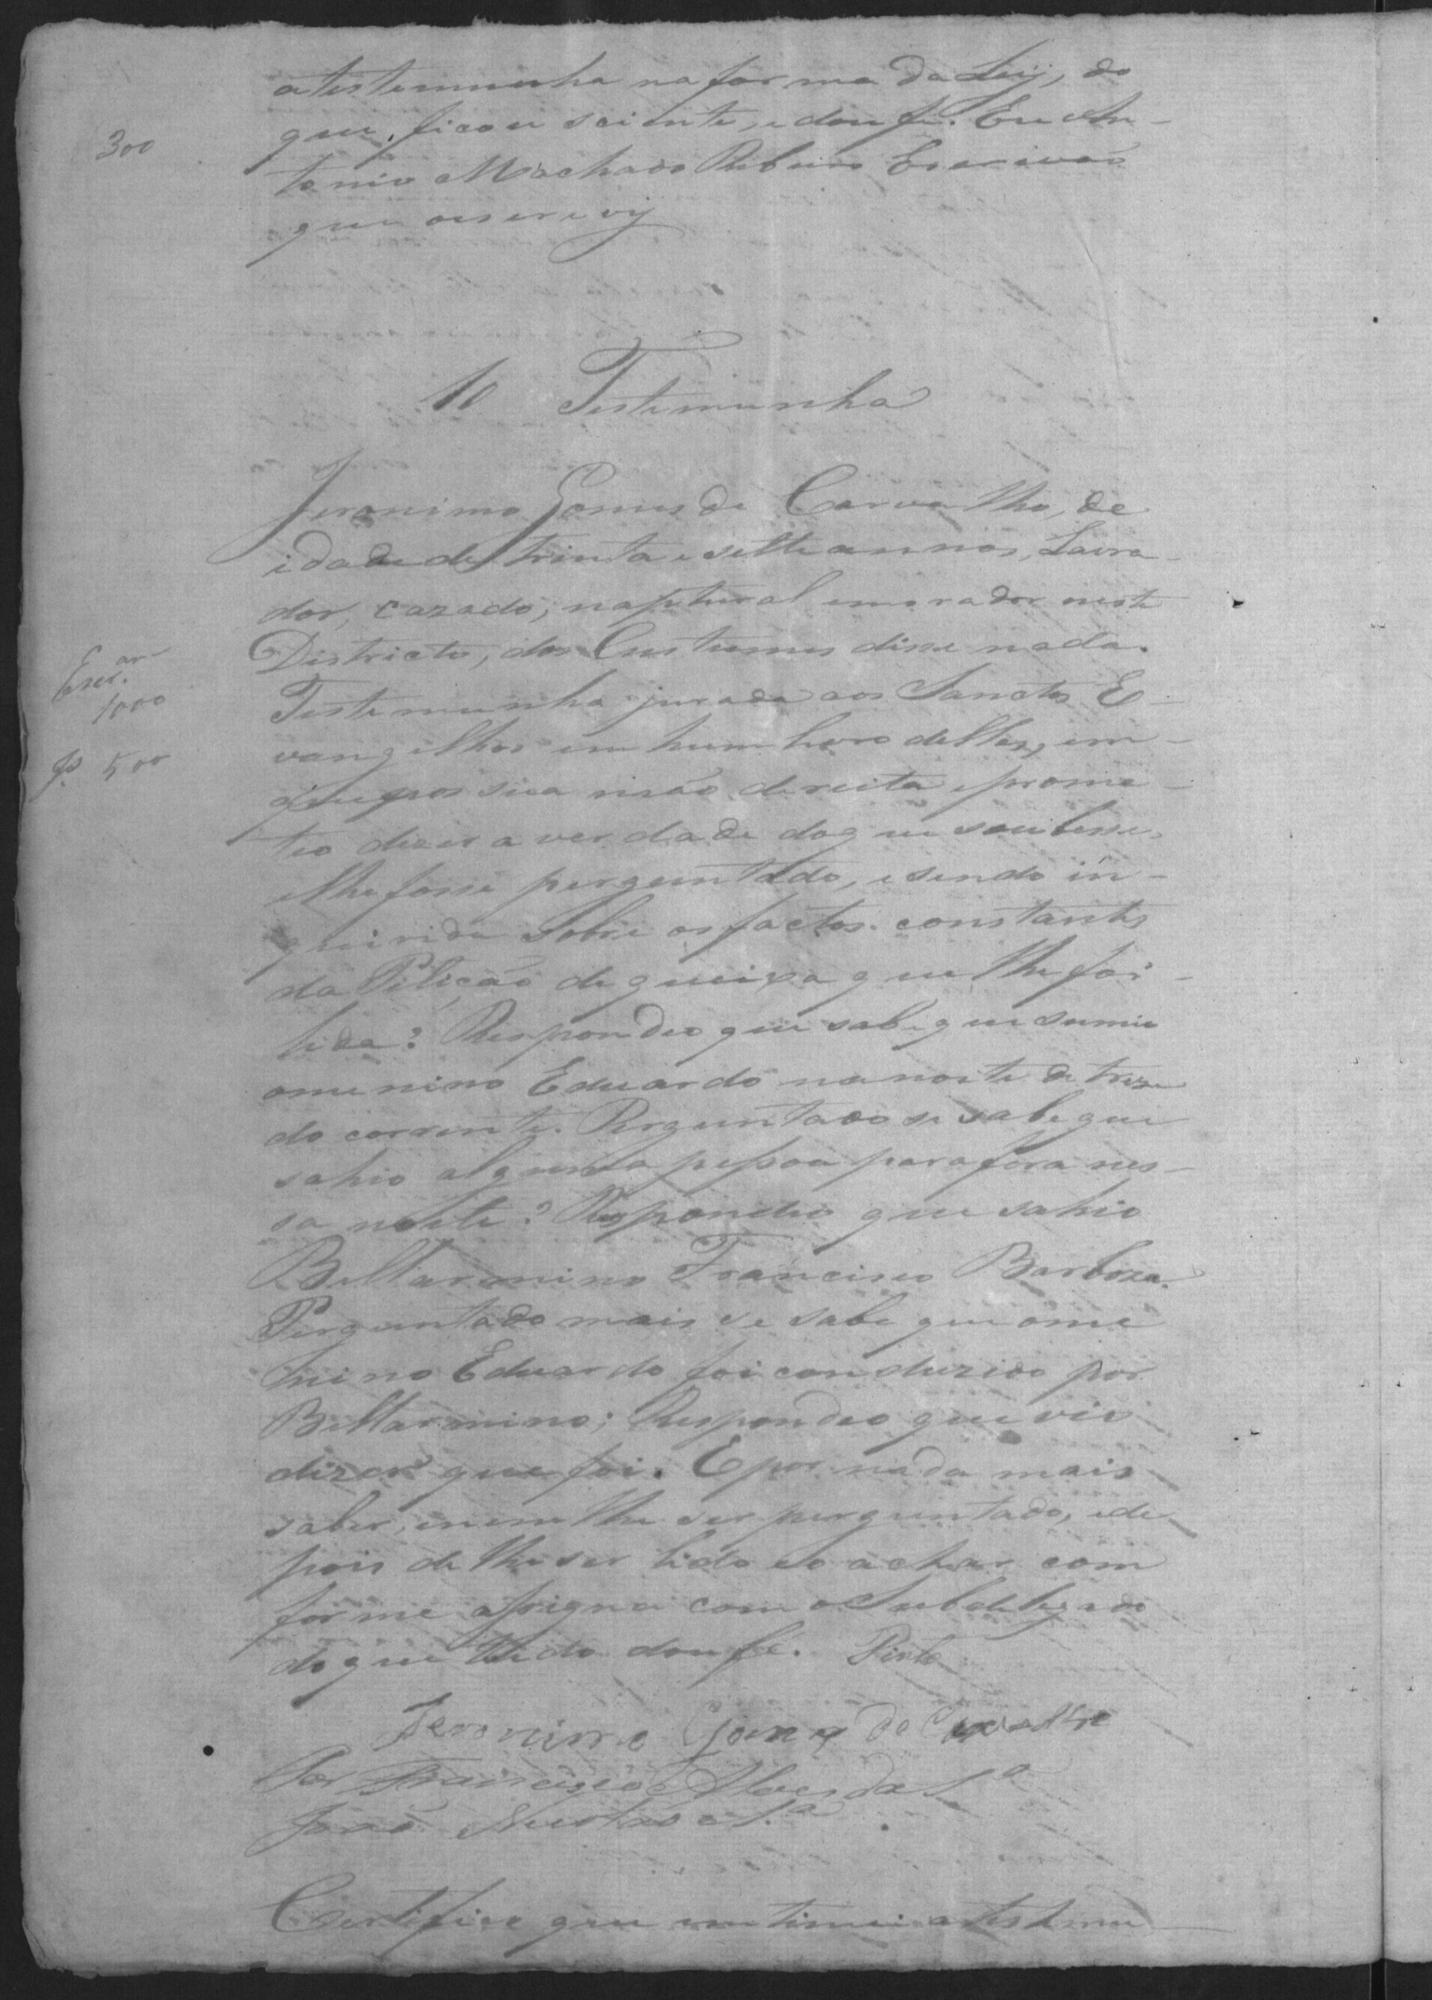 a testemunha na forma da Leij, do
300
que ficou sciente, e dou fe. Eu An-
tonio Machado Ribeiro Escrivão
que oescrevij
10 Testemunha
Jeronimo Gomes de Carvalho, de
idade de trinta e sette annos, Lavra-
dor, cazado, naptural emorador neste
Districto, dos Custumes disse nada.
Testemunha jurada aos Sanctos E-
1000
vangelhos em hum livro delles, em
500
que pos sua mão direita eprome-
teo dizer a verdade doque soubesse,
elhe fosse perguntado, esendo in-
quirida sobre os factos constantes
da Petição de queixa que lhe foi
lida? Respondeo que sabe que sumio
omenino Eduardo na noite de treze
do corrente. Perguntado se sabe que
sahio alguma pessoa para fora nes-
sa noite? Respondeo que sahio
Bellarmino Francisco Barboza.
Perguntado mais se sabe que ome
nino Eduardo foi conduzido por
Bellarmino; Respondeo que vio
dizer que foi. E por nada mais
saber, enem lhe ser perguntado, ede-
pois de lhe ser lido eo achar com
forme assigna com o Subdelegado
do que tudo dou fe.
Jeronimo Gomes de Carvalho
Francisco Alves da S.ª
João
Certifico que intimei a testemu-